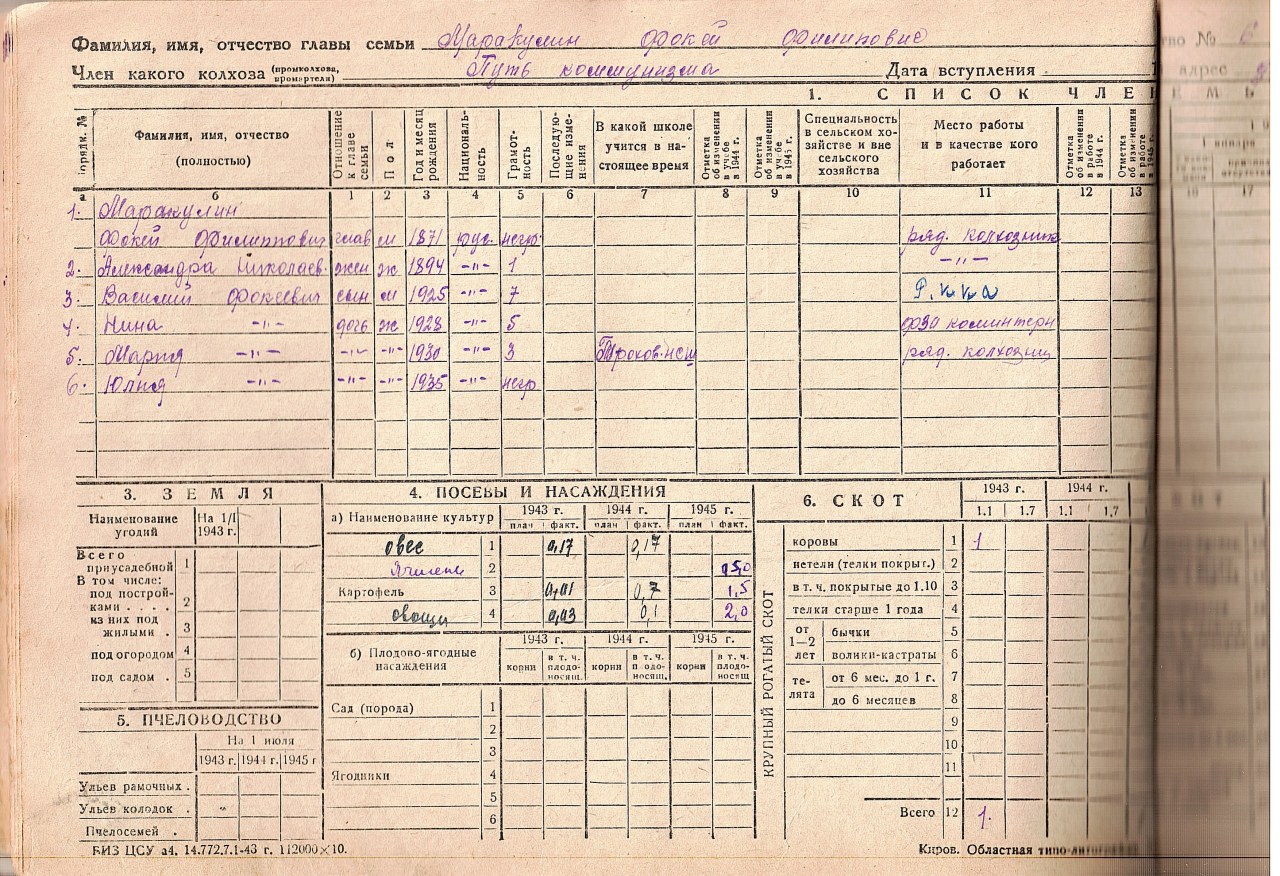 Фамилия, имя, отчество главы семьи Маракулин Фокей Филиппович
Член какого колхоза (промколхоза, промартели) Путь коммунизма Дата вступления
1. СПИСОК ЧЛЕН
порядк. № Фамилия, имя, отчество (полностью) Отношение к главе семьи Пол Год и месяц рождения Националь-ность Грамот-ность Последую-щие изме-нения В какой школе учится в на-стоящее время Отметка об изменении в учебе в 1944 г. Отметка об изменении в учебе в 1945 г. Специальность в сельском хо-зяйстве и вне сельского хозяйства Место работы и в качестве кого работает Отметка об изменении в работе в 1944 г. Отметка об изменении в работе в 1945 г.
а б 1 2 3 4 5 6 7 8 9 10 11 12 13 16 17
1. Маракулин
Фокей Филиппович глав м 1871 рус. негр. ряд. колхозник
2. Александра Николаев. жен ж 1894 -"- 1 -"-
3. Василий Фокеевич сын м 1925 -"- 7 Р.К.К.А
4. Нина -"- дочь ж 1928 -"- 5 ФЗО Коминтерн
5. Мария -"- -"- -"- 1930 -"- 3 ряд. колхозниц
6. Юлия -"- -"- -"- 1935 -"- негр
3. ЗЕМЛЯ
Наименование угодий На 1/I 1943 г.
Всего приусадебной 1
В том числе:
под построй-ками . . . . 2
из них под жилыми . 3
под огородом 4
под садом . 5
5. ПЧЕЛОВОДСТВО
На 1 июля
1943 г. 1944 г. 1945 г
Ульев рамочных .
Ульев колодок . "
Пчелосемей .
4. ПОСЕВЫ И НАСАЖДЕНИЯ
а) Наименование культур 1943 г. 1944 г. 1945 г.
план факт. план факт. план факт.
овес 1 0,17 0,17
Ячмень 2
Картофель 3 0,01 0,7 1,5
овощи 4 0,03 0,1 2,0
б) Плодово-ягодные насаждения 1943 г. 1944 г. 1945 г.
корни в т. ч. плодо-носящ. корни в т. ч. плодо-носящ. корни в т. ч. плодо-носящ
Сад (порода) 1
2
3
Ягодники 4
5
6
6. СКОТ 1943 г. 1944 г.
1.1 1.7 1.1 1.7
КРУПНЫЙ РОГАТЫЙ СКОТ
коровы 1 1
нетели (телки покрыт.) 2
в т. ч. покрытые до 1.10 3
телки старше 1 года 4
от 1—2 лет бычки 5
волики-кастраты 6
те-лята от 6 мес. до 1 г. 7
до 6 месяцев 8
9
10
11
Всего 12 1.
БИЗ ЦСУ з4. 14.772.7.1-43 г. 112000×10.
Киров. Областная типо-литография